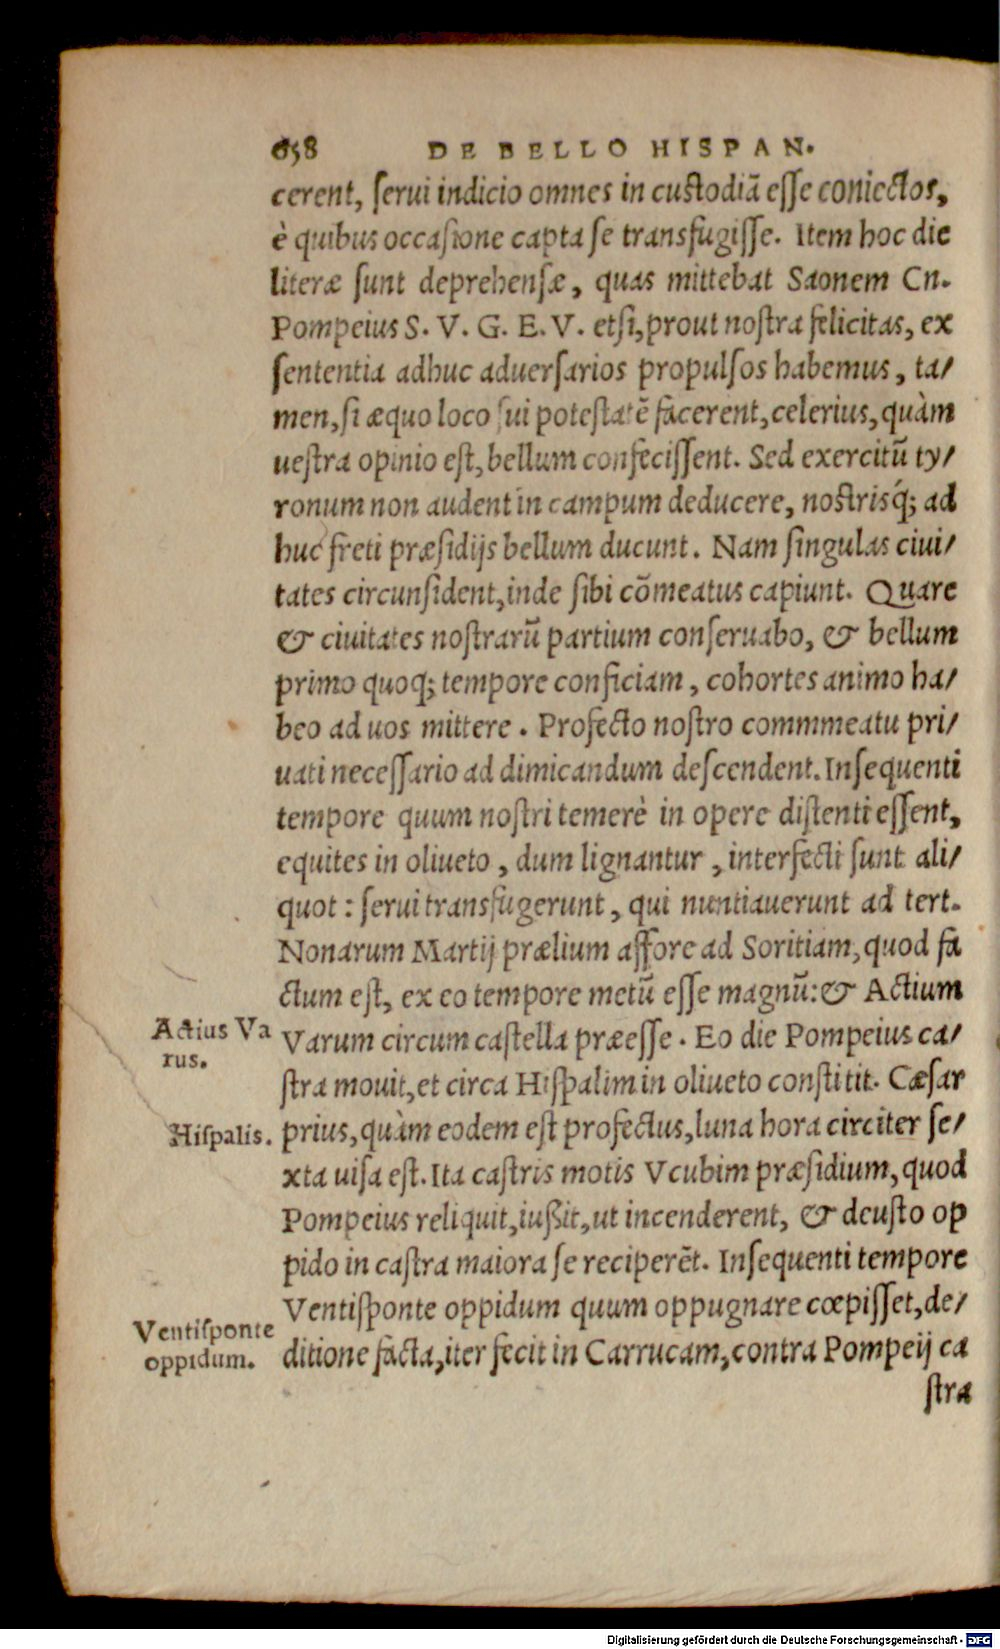 658 DE BELLO HISPAN.
cerent, ſerui indicio omnes in cuſtodiā eſſe coniectos,
è quibus occaſione capta ſe transfugiſſe. Item hoc die
literæ ſunt deprehenſæ, quas mittebat Saonem Cn.
Pompeius S. V. G. E. V. etſi, prout noſtra felicitas, ex
ſententia adhuc aduerſarios propulſos habemus, ta/
men, ſi æquo loco ſui poteſtatē facerent, celerius, quàm
ueſtra opinio eſt, bellum confeciſſent. Sed exercitū ty/
ronum non audent in campum deducere, noſtrisq́; ad
huc freti præſidijs bellum ducunt. Nam ſingulas ciui/
tates circunſident, inde ſibi cōmeatus capiunt. Quare
& ciuitates noſtrarū partium conſeruabo, & bellum
primo quoq; tempore conficiam, cohortes animo ha/
beo ad uos mittere. Profecto noſtro commmeatu pri/
uati neceſſario ad dimicandum deſcendent. Inſequenti
tempore quum noſtri temerè in opere diſtenti eſſent,
equites in oliueto, dum lignantur, interfecti ſunt ali/
quot: ſerui transfugerunt, qui nuntiauerunt ad tert.
Nonarum Martij prælium affore ad Soritiam, quod fa
ctum eſt, ex eo tempore metū eſſe magnū: & Actium
Actius Va
rus.
Varum circum caſtella præeſſe. Eo die Pompeius ca/
ſtra mouit, et circa Hiſpalim in oliueto conſtitit. Cæſar
Hiſpalis.
prius, quàm eodem eſt profectus, luna hora circiter ſe/
xta uiſa eſt. Ita caſtris motis Vcubim præſidium, quod
Pompeius reliquit, iußit, ut incenderent, & deuſto op
pido in caſtra maiora ſe reciperēt. Inſequenti tempore
Ventiſponte
oppidum.
Ventiſponte oppidum quum oppugnare cœpiſſet, de/
ditione facta, iter fecit in Carrucam, contra Pompeij ca
ſtra
Digitalisierung gefördert durch die Deutsche Forschungsgemeinschaft - DFG